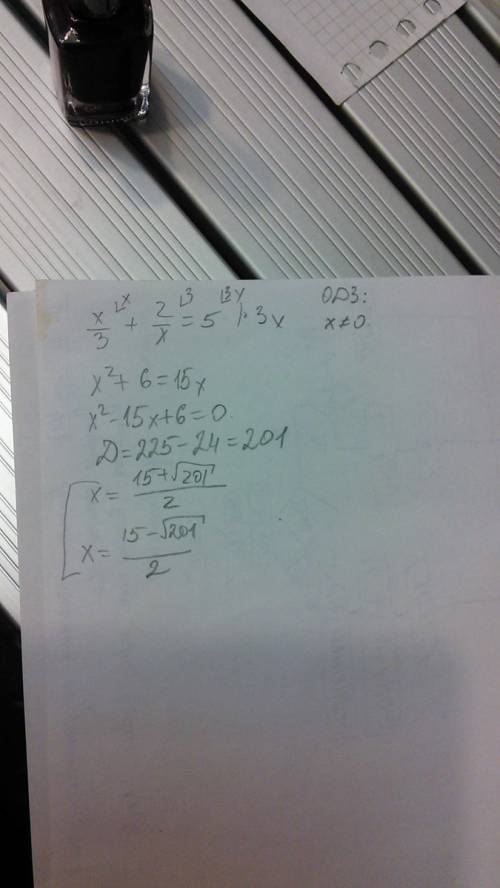 x/3 ⌊x + 2/x ⌊3 = 5 ⌊3x |·3x ОДЗ:
x≠0
x² + 6 = 15x
x² - 15x + 6 = 0.
D = 225 - 24 = 201
[ x = (15+√201)/2
x = (15-√201)/2